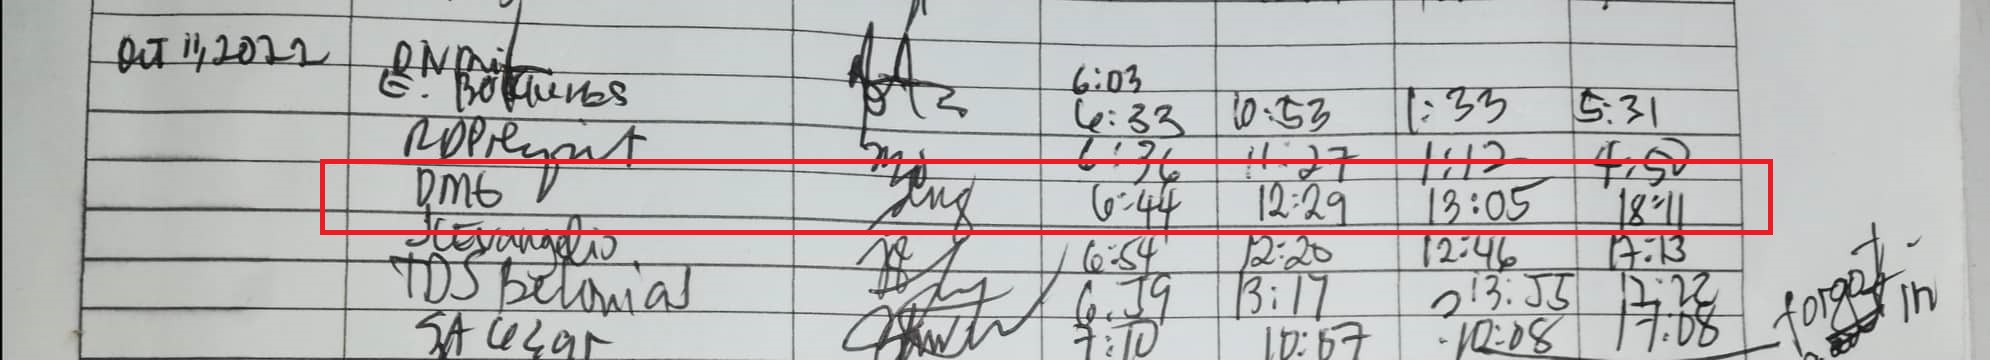 Oct 11, 2022
6:03
E. 6:33 10:53 1:33 5:31
6:36 11:27 1:12 4:50
DMG 6:44 12:29 13:05 18:11
JCEvangelio 6:54 12:20 12:46 17:13
TDS Belonias 6:59 13:17 13:55 17:22
SA Cesar 7:10 10:57 12:08 17:08
forgot in